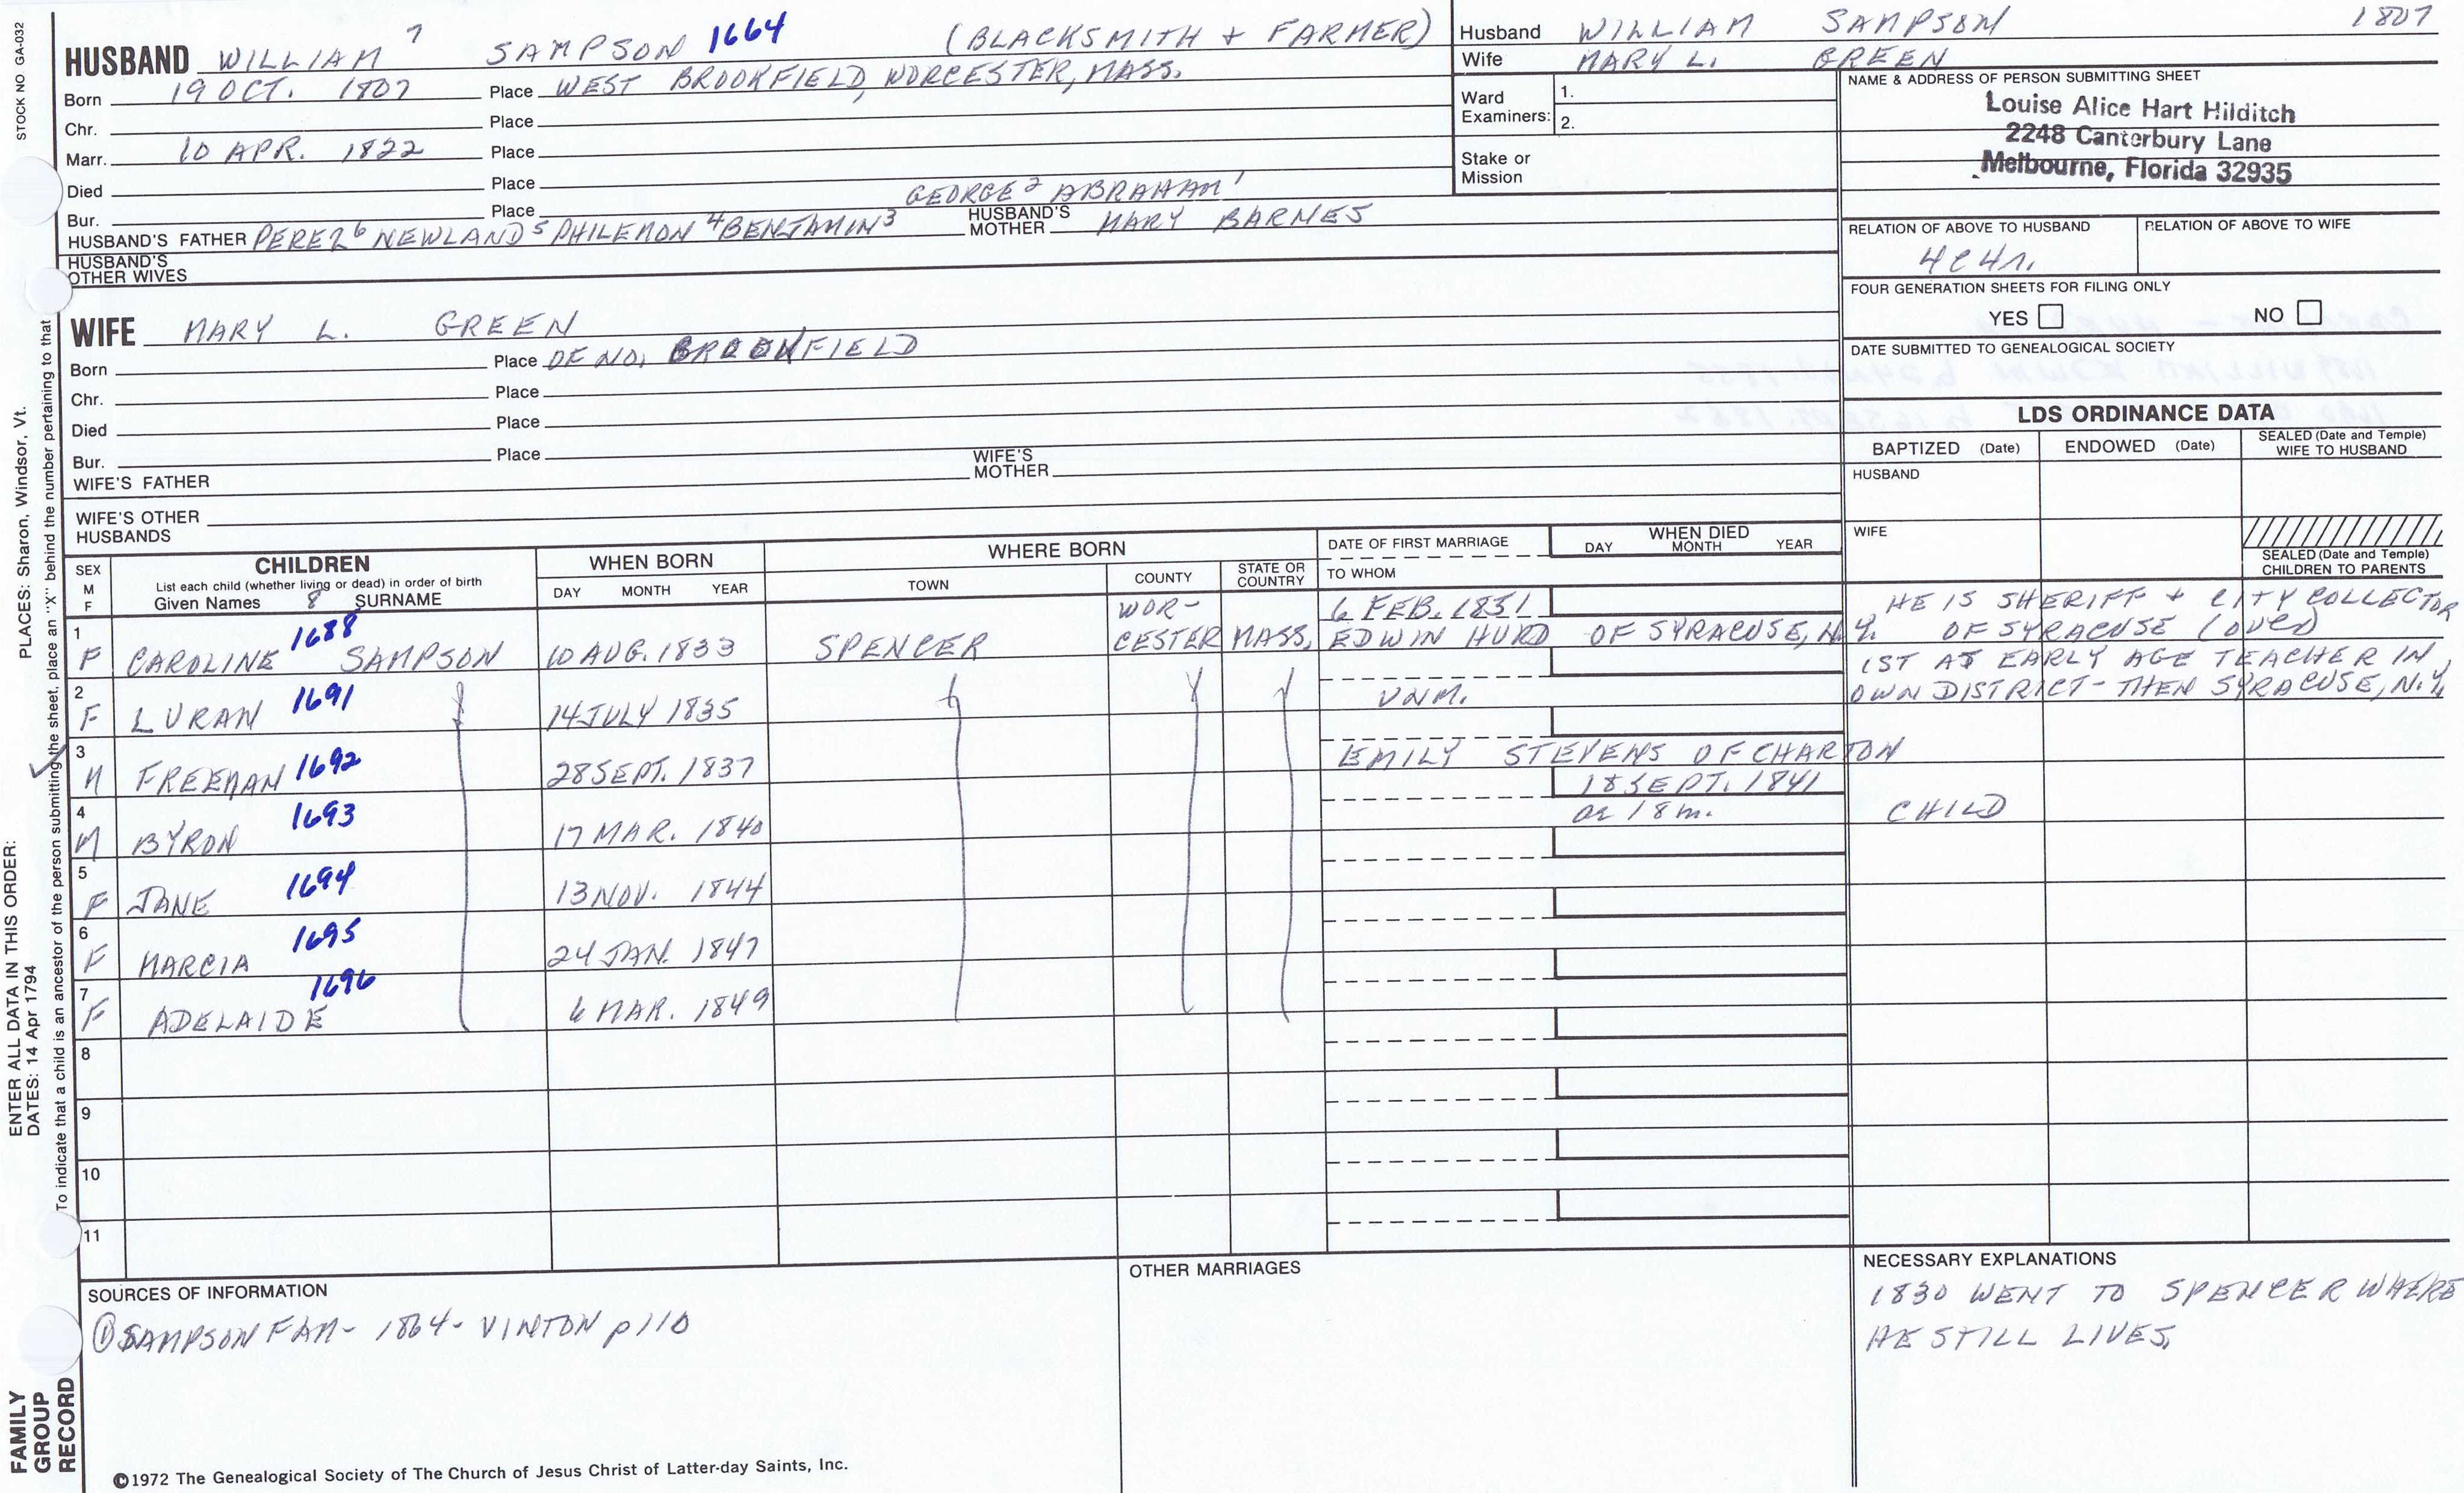 STOCK NO GA-032
PLACES: Sharon, Windsor, Vt.
ENTER ALL DATA IN THIS ORDER:
DATES: 14 Apr 1794
To indicate that a child is an ancestor of the person submitting the sheet, place an "X" behind the number pertaining to that
FAMILY
GROUP
RECORD
HUSBAND WILLIAM 7 SAMPSON 1664 (BLACKSMITH + FARMER)
Born 19 OCT. 1807 Place WEST BROOKFIELD, WORCESTER, MASS.
Chr. Place
Marr. 10 APR. 1822 Place
Died Place
GEORGE 2 ABRAHAM 1
Bur. Place
HUSBAND'S FATHER PEREZ 6 NEWLAND 5 PHILEMON 4 BENJAMIN 3 HUSBAND'S MOTHER MARY BARNES
HUSBAND'S
OTHER WIVES
WIFE MARY L. GREEN
Born Place OF NO. BROOKFIELD
Chr. Place
Died Place
Bur. Place
WIFE'S FATHER WIFE'S MOTHER
WIFE'S OTHER
HUSBANDS
Husband WILLIAM SAMPSON 1807
Wife MARY L. GREEN
Ward
Examiners:
1.
2.
Stake or
Mission
NAME & ADDRESS OF PERSON SUBMITTING SHEET
Louise Alice Hart Hilditch
2248 Canterbury Lane
Melbourne, Florida 32935
RELATION OF ABOVE TO HUSBAND RELATION OF ABOVE TO WIFE
4C4r.
FOUR GENERATION SHEETS FOR FILING ONLY
YES NO
DATE SUBMITTED TO GENEALOGICAL SOCIETY
LDS ORDINANCE DATA
BAPTIZED (Date) ENDOWED (Date) SEALED (Date and Temple) WIFE TO HUSBAND
HUSBAND
WIFE
SEALED (Date and Temple)
CHILDREN TO PARENTS
SEX
M
F
CHILDREN
List each child (whether living or dead) in order of birth
Given Names 8 SURNAME
WHEN BORN
DAY MONTH YEAR
WHERE BORN
TOWN COUNTY STATE OR COUNTRY
DATE OF FIRST MARRIAGE
TO WHOM
WHEN DIED
DAY MONTH YEAR
1 F CAROLINE 1688 SAMPSON 10 AUG. 1833 SPENCER WOR-CESTER MASS. 6 FEB. 1851 EDWIN HURD OF SYRACUSE, N.Y. HE IS SHERIFF + CITY COLLECTOR
OF SYRACUSE (OVER)
2 F LURAN 1691 14 JULY 1835 UNM. 1ST AT EARLY AGE TEACHER IN
OWN DISTRICT - THEN SYRACUSE, N.Y.
3 M FREEMAN 1692 28 SEPT. 1837 EMILY STEVENS OF CHARTON
4 M BYRON 1693 17 MAR. 1840 18 SEPT. 1841
ae 18 m. CHILD
5 F JANE 1694 13 NOV. 1844
6 F MARCIA 1695 24 JAN. 1847
7 F ADELAIDE 1696 6 MAR. 1849
8
9
10
11
SOURCES OF INFORMATION
① SAMPSON FAM - 1864 - VINTON p 110
OTHER MARRIAGES
NECESSARY EXPLANATIONS
1830 WENT TO SPENCER WHERE
HE STILL LIVES.
©1972 The Genealogical Society of The Church of Jesus Christ of Latter-day Saints, Inc.